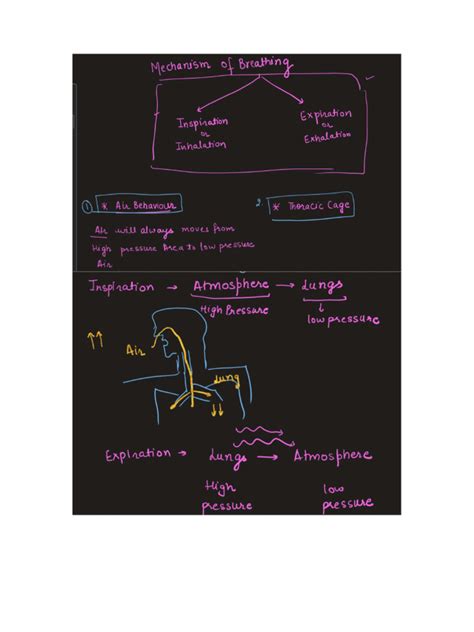 Mechanism of Breathing
Inspiration
or
Inhalation
Expiration
or
Exhalation
① * Air Behaviour
2. * Thoracic Cage
Air will always moves from
High pressure Area to low pressure
Air
Inspiration → Atmosphere → Lungs
High Pressure
low pressure
Air
Lung
Expiration → Lungs → Atmosphere
High
pressure
low
pressure